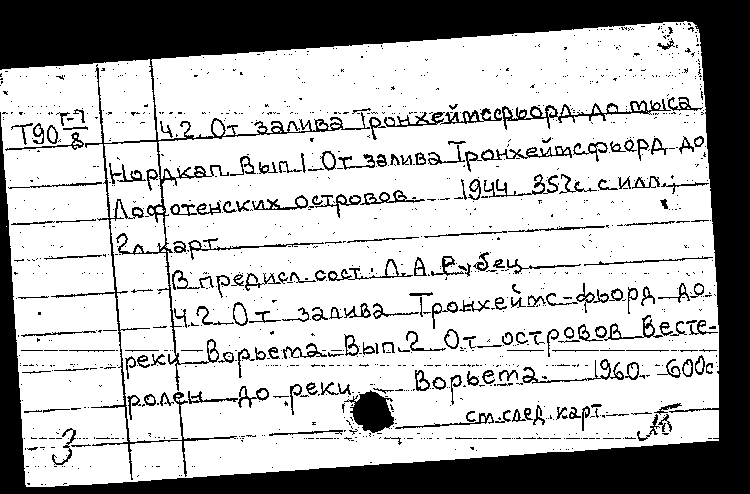 3
Т90 Г-7/8 Ч.2. От залива Тронхеймсфьорд до мыса
Нордкап. Вып.1. От залива Тронхеймсфьорд до
Лофотенских островов. 1944. 357с. с илл.;
2л карт.
В предисл. сост.: Л.А. Рубец.
Ч.2. От залива Тронхеймс-фьорд до
реки Ворьема. Вып.2. От островов Весте-
рален до реки Ворьема. 1960 600с.
см. след. карт.
3